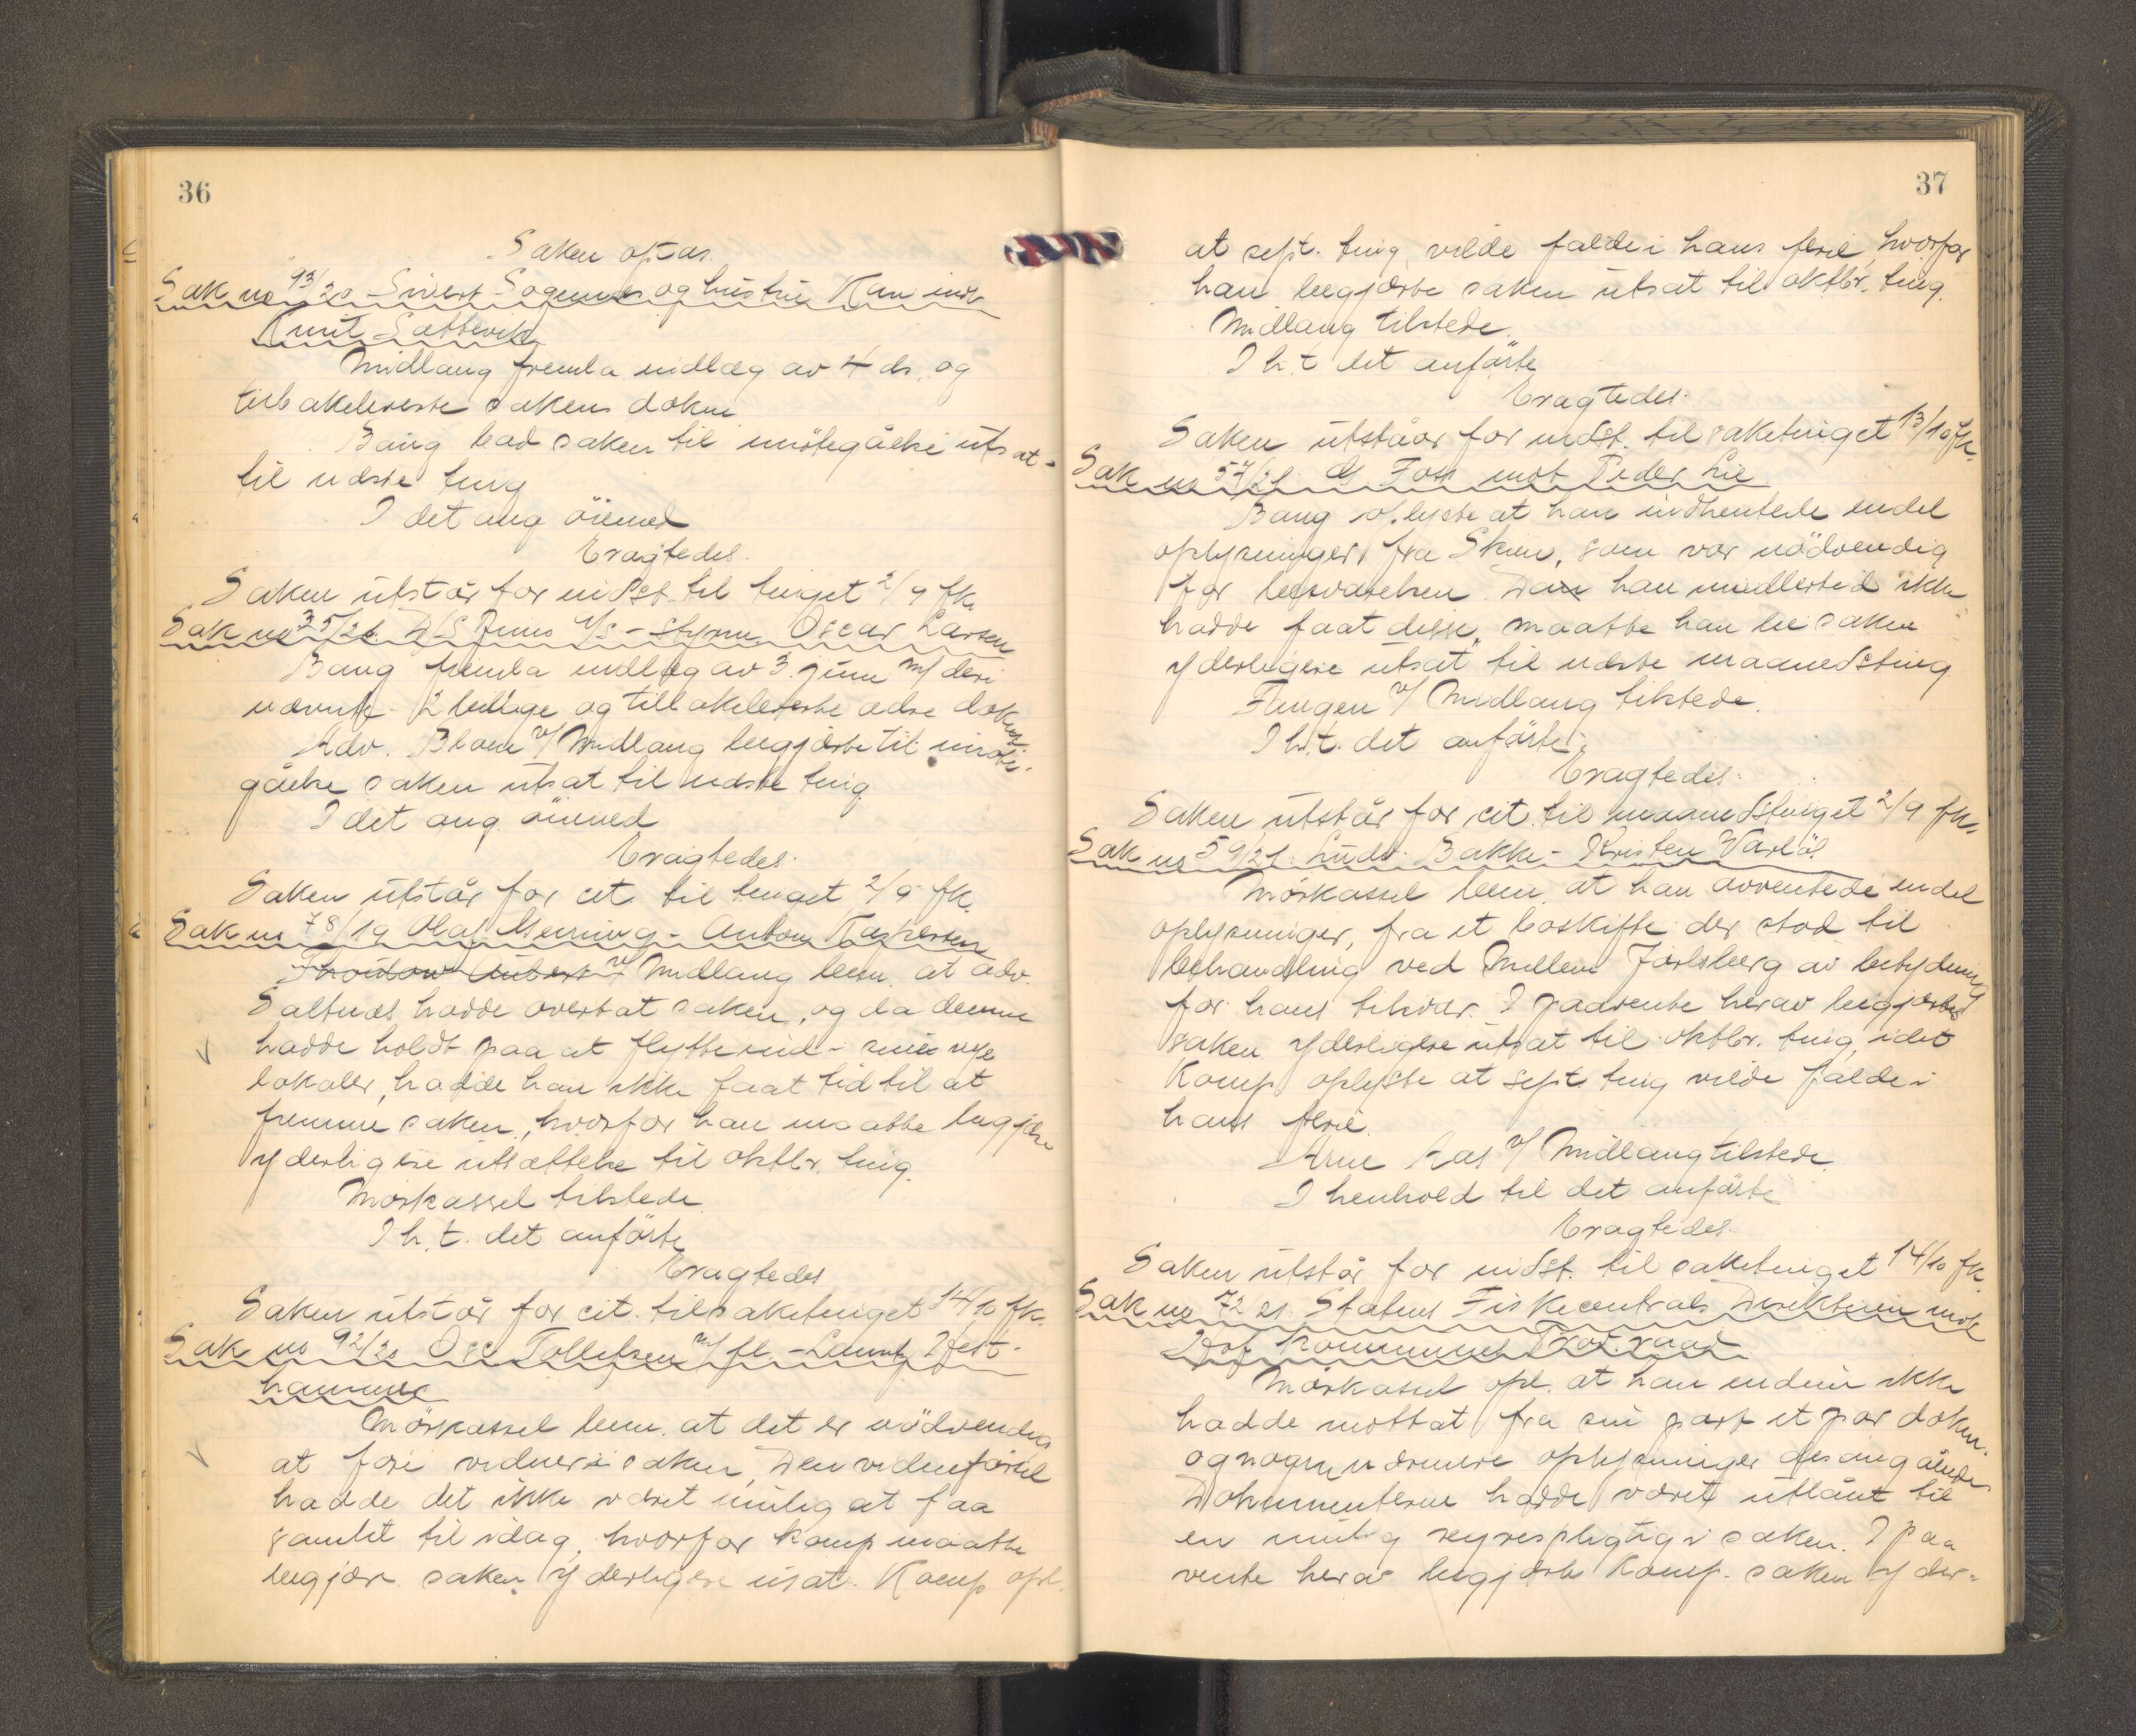 36
Saken optas.
Sak no 93/20 Sivert Sogennes og hustru Kari mot
Knut Sættevik
Midlang fremla indlæg av 4 ds. og
tilbakeleverte sakens dokm
Bang bad saken til imøtegåelse utsat
til næste ting
I det ang öiemed
Eragtedes.
Saken utstår for indst. til tinget 2/9 fk.
Sak no 35/21. D/S Juno A/S - styrm. Oscar Larsen
Bang fremla indlæg av 3. juni m/ deri
nævnte 2 bilage og tilbakeleverte ældre dokum.
Adv. Blom v/ Midlang begjærte til imøte-
gåelse saken utsat til næste ting
I det ang. öiemed
Eragtedes.
Saken utstår for cit. til tinget 2/9 fk.
Sak no 78/19 Olaf Merning - Anton Kaspersen
v/ Midlang bem. at adv.
Saltnes hadde overtat saken, og da denne
hadde holdt paa at flytte ind i sine nye
lokaler, hadde han ikke faat tid til at
fremme saken, hvorfor han maatte begjære
yderligere utsættelse til oktbr. ting.
Mörkassel tilstede.
I h. t. det anförte
Eragtedes
Saken utstår for cit. til saketinget 14/10 fk.
Sak no 92/20 Osc Tollefsen m/ fl. - Lauritz Hest-
hammer
Mörkassel bem. at det er nödvendig
at före vidner i saken. Den vidneförsel
hadde det ikke været mulig at faa
samlet til idag, hvorfor komp maatte
begjære saken yderligere utsat. Komp opl.
37
at sept. ting vilde falde i hans ferie, hvorfor
han begjærte saken utsat til oktbr. ting.
Midlang tilstede.
I h. t det anförte
Eragtedes.
Saken utståar for indst. til saketinget 13/10 fk.
Sak no 57/21. G Foss mot Peder Lie
Bang oplyste at han indhentede endel
oplysninger fra Skien, som var nödvendig
for besvarelsen. Da han imidlertid ikke
hadde faat disse, maatte han be saken
yderligere utsat til næste maanedsting
v/ Midlang tilstede.
I h. t. det anförte,
Eragtedes.
Saken utstår for cit. til maanedstinget 2/9 fk.
Sak no 59/21. Ludv. Bakke - Kristen Varlöl
Mörkassel bem. at han avventede endel
oplysninger, fra et boskifte der stod til
behandling ved Mellem Jarlsberg av betydning
for hans tilsvar. I paavente herav begjærtes
saken yderligere utsat til oktbr. ting, idet
Komp oplyste at sept. ting vilde falde i
hans ferie.
Arne Aas v/ Midlang tilstede.
I henhold til det anförte
Eragtedes.
Saken utstår for indst. til saketinget 14/10 fk
Sak no 72/21. Statens Fiskecentrals Direktion mot
kommunes Prov. raad
Mörkassel opl. at han endnu ikke
hadde mottat fra sin part et par dokm.
og nogen nærmere oplysninger desangående
Dokumenterne hadde været utlånt til
en mulig regrespligtig i saken. I paa
vente herav begjærte komp. saken yder-